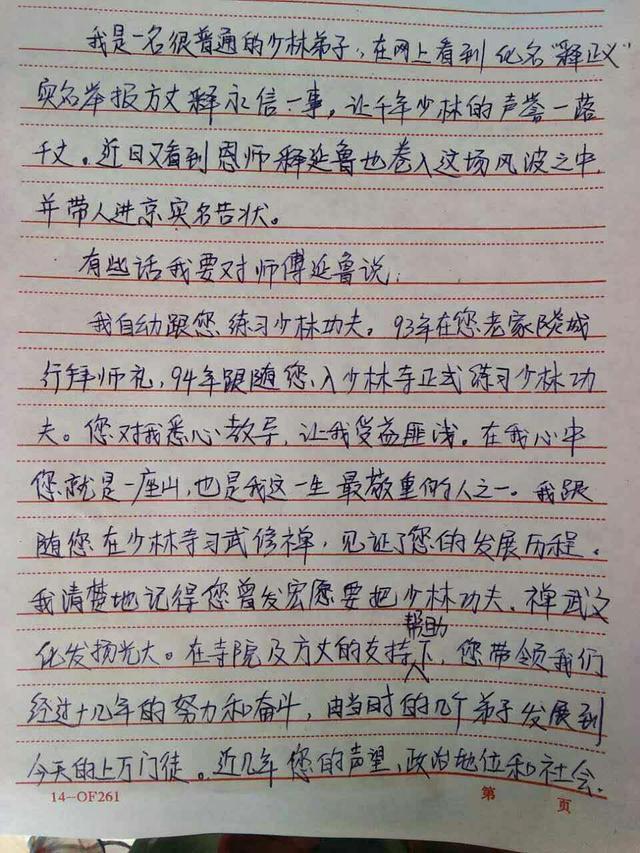 我是一名很普通的少林弟子,在网上看到化名“释正义”
实名举报方丈释永信一事,让千年少林的声誉一落
千丈。近日又看到恩师释延鲁也卷入这场风波之中,
并带人进京实名告状。
有些话我要对师傅延鲁说:
我自幼跟您练习少林功夫。93年在您老家陵城
行拜师礼,94年跟随您入少林寺正式练习少林功
夫。您对我悉心教导,让我受益匪浅。在我心中
您就是一座山,也是我这一生最敬重的人之一。我跟
随您在少林寺习武修禅,见证了您的发展历程。
我清楚地记得您曾发宏愿要把少林功夫、禅武文
化发扬光大。在寺院及方丈的支持帮助下,您带领我们
经过十几年的努力和奋斗,由当时的几个弟子发展到
今天的上万门徒。近几年您的声望,政治地位和社会
14--OF261 第 页